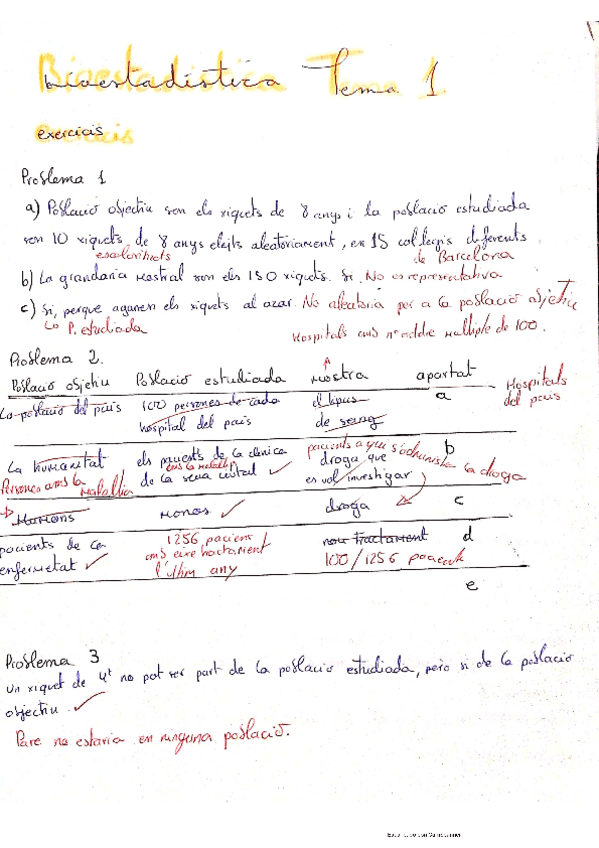 Bioestadística Tema 1.
exercicis
Problema 1
a) Població objectiu son els xiquets de 8 anys i la població estudiada
son 10 xiquets de 8 anys elejits aleatoriament, en 15 col·legis diferents
escolaritzats
de Barcelona
b) La grandaria mostral son els 150 xiquets. Si. No es representativa
c) Si, perque agafen els xiquets al azar. No aleatoria per a la població objectiu
P. estudiada
Hospitals amb nº múltiple de 100.
Problema 2.
Població objectiu Població estudiada mostra apartat
Hospitals
del país
La població del país 100 persones de cada
hospital del país
el tipus
de sang
a
La humanitat
Persones amb la malaltia
els pacients de la clinica
amb la malaltia
de la seua ciutat
pacients a qui s'administra la droga
droga que
es vol investigar
b
Humans monos droga c
pacients de la
enfermetat
1256 pacients
amb eixe tractament
l'últim any
nou tractament
100/1256 pacients
d
e
Problema 3
Un xiquet de 4t no pot ser part de la població estudiada, pero si de la població
objectiu.
Pare no estaria en ninguna població.